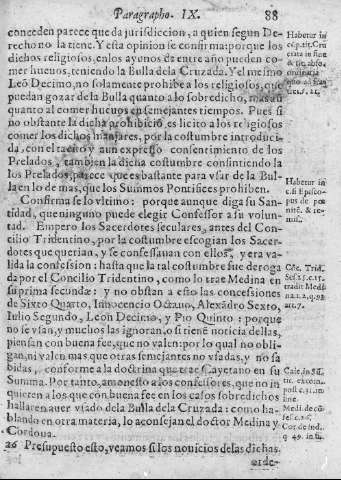 Paragrapho. IX. 88
conceden parece que da jurisdiccion, a quien segun De-
recho no la tiene. Y esta opinion se confirma: porque los
dichos religiosos, en los ayunos de entre año pueden co-
mer hueuos, teniendo la Bulla de la Cruzada. Y el mesmo
Leō Decimo, no solamente prohibe a los religiosos, que
puedan gozar de la Bulla quanto a lo sobredicho, mas aū
quanto al comer hueuos en semejantes tiempos. Pues si
no obstante la dicha prohibiciō, es licito a los religiosos
comer los dichos manjares, por la costumbre introduci-
da, con el tacito y aun expresso consentimiento de los
Prelados, tambien la dicha costumbre consintiendo la
los Prelados, parece que es bastante para vsar de la Bu-
lla en lo de mas, que los Summos Pontifices prohiben.
Confirma se lo vltimo: porque aunque diga su San-
tidad, que ninguno puede elegir Confessor a su volun-
tad. Empero los Sacerdotes seculares, antes del Con-
cilio Tridentino, por la costumbre escogian los Sacer-
dotes que querian, y se confessauan con ellos, y era va-
lida la confession: hasta que la tal costumbre fue deroga
da por el Concilio Tridentino, como lo trae Medina en
su prima secundæ: y no obstan a esto las concessiones
de Sixto Quarto, Innocencio Octauo, Alexādro Sexto,
Iulio Segundo, Leon Decimo, y Pio Quinto: porque
no se vsan, y muchos las ignoran, o si tienē noticia dellas,
piensan con buena fee, que no valen: por lo qual no obli-
gan, ni valen mas que otras semejantes no vsadas, y no sa
bidas, conforme a la doctrina que trae Cayetano en su
Summa. Por tanto, amonesto a los confessores, que no in
quieren a los que con buena fee en los casos sobredichos
hallaren auer vsado de la Bulla de la Cruzada: como ha-
blando en otra materia, lo aconsejan el doctor Medina y
Cordoua.
26 Presupuesto esto, veamos si los nouicios de las dichas
orde-
Habetur in
Habetur in
c. si Episco-
pus de pœ-
nitē. & re-
mis.
Cōc. Trid.
Sess. 23. c. 15.
tradit Medi-
na. 1. 2. q. 93.
art. 7.
Caie. in Sū.
tit. excom.
post c. 31. in
fine.
Medi. de cō-
Cor. de ind.
q. 49. in fi.